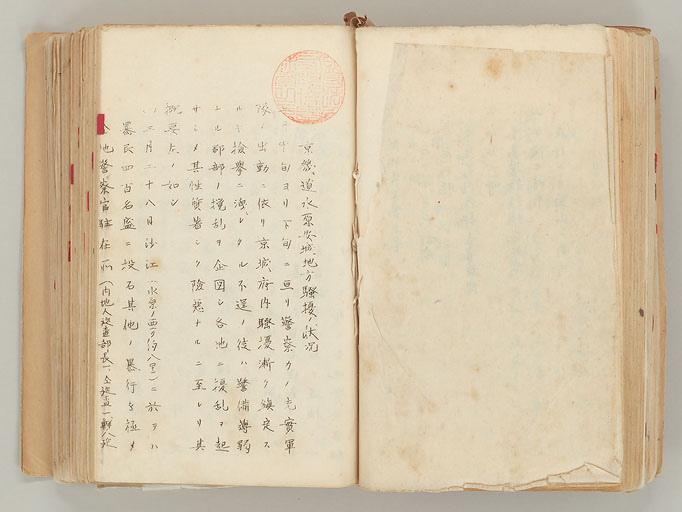 京畿道水原安城地方騒擾ノ状況
中旬ヨリ下旬ニ亘リ警察力ノ充實軍
隊ノ出動ニ依リ京城府内騒擾漸ク鎮定ス
ルモ検挙ニ洩レタル不逞ノ徒ハ警備薄弱
ナル郡部ノ擾乱ヲ企図シ各地ニ擾乱ヲ起
サシメ其性質著シク険悪ナルニ至レリ其
概要左ノ如シ
三月二十八日沙江(水原ノ西方約八里)ニ於テハ
暴民四百名盛ニ投石其他ノ暴行ヲ極メ
地警察官駐在所(内地人巡査部長一、巡査一、鮮人巡